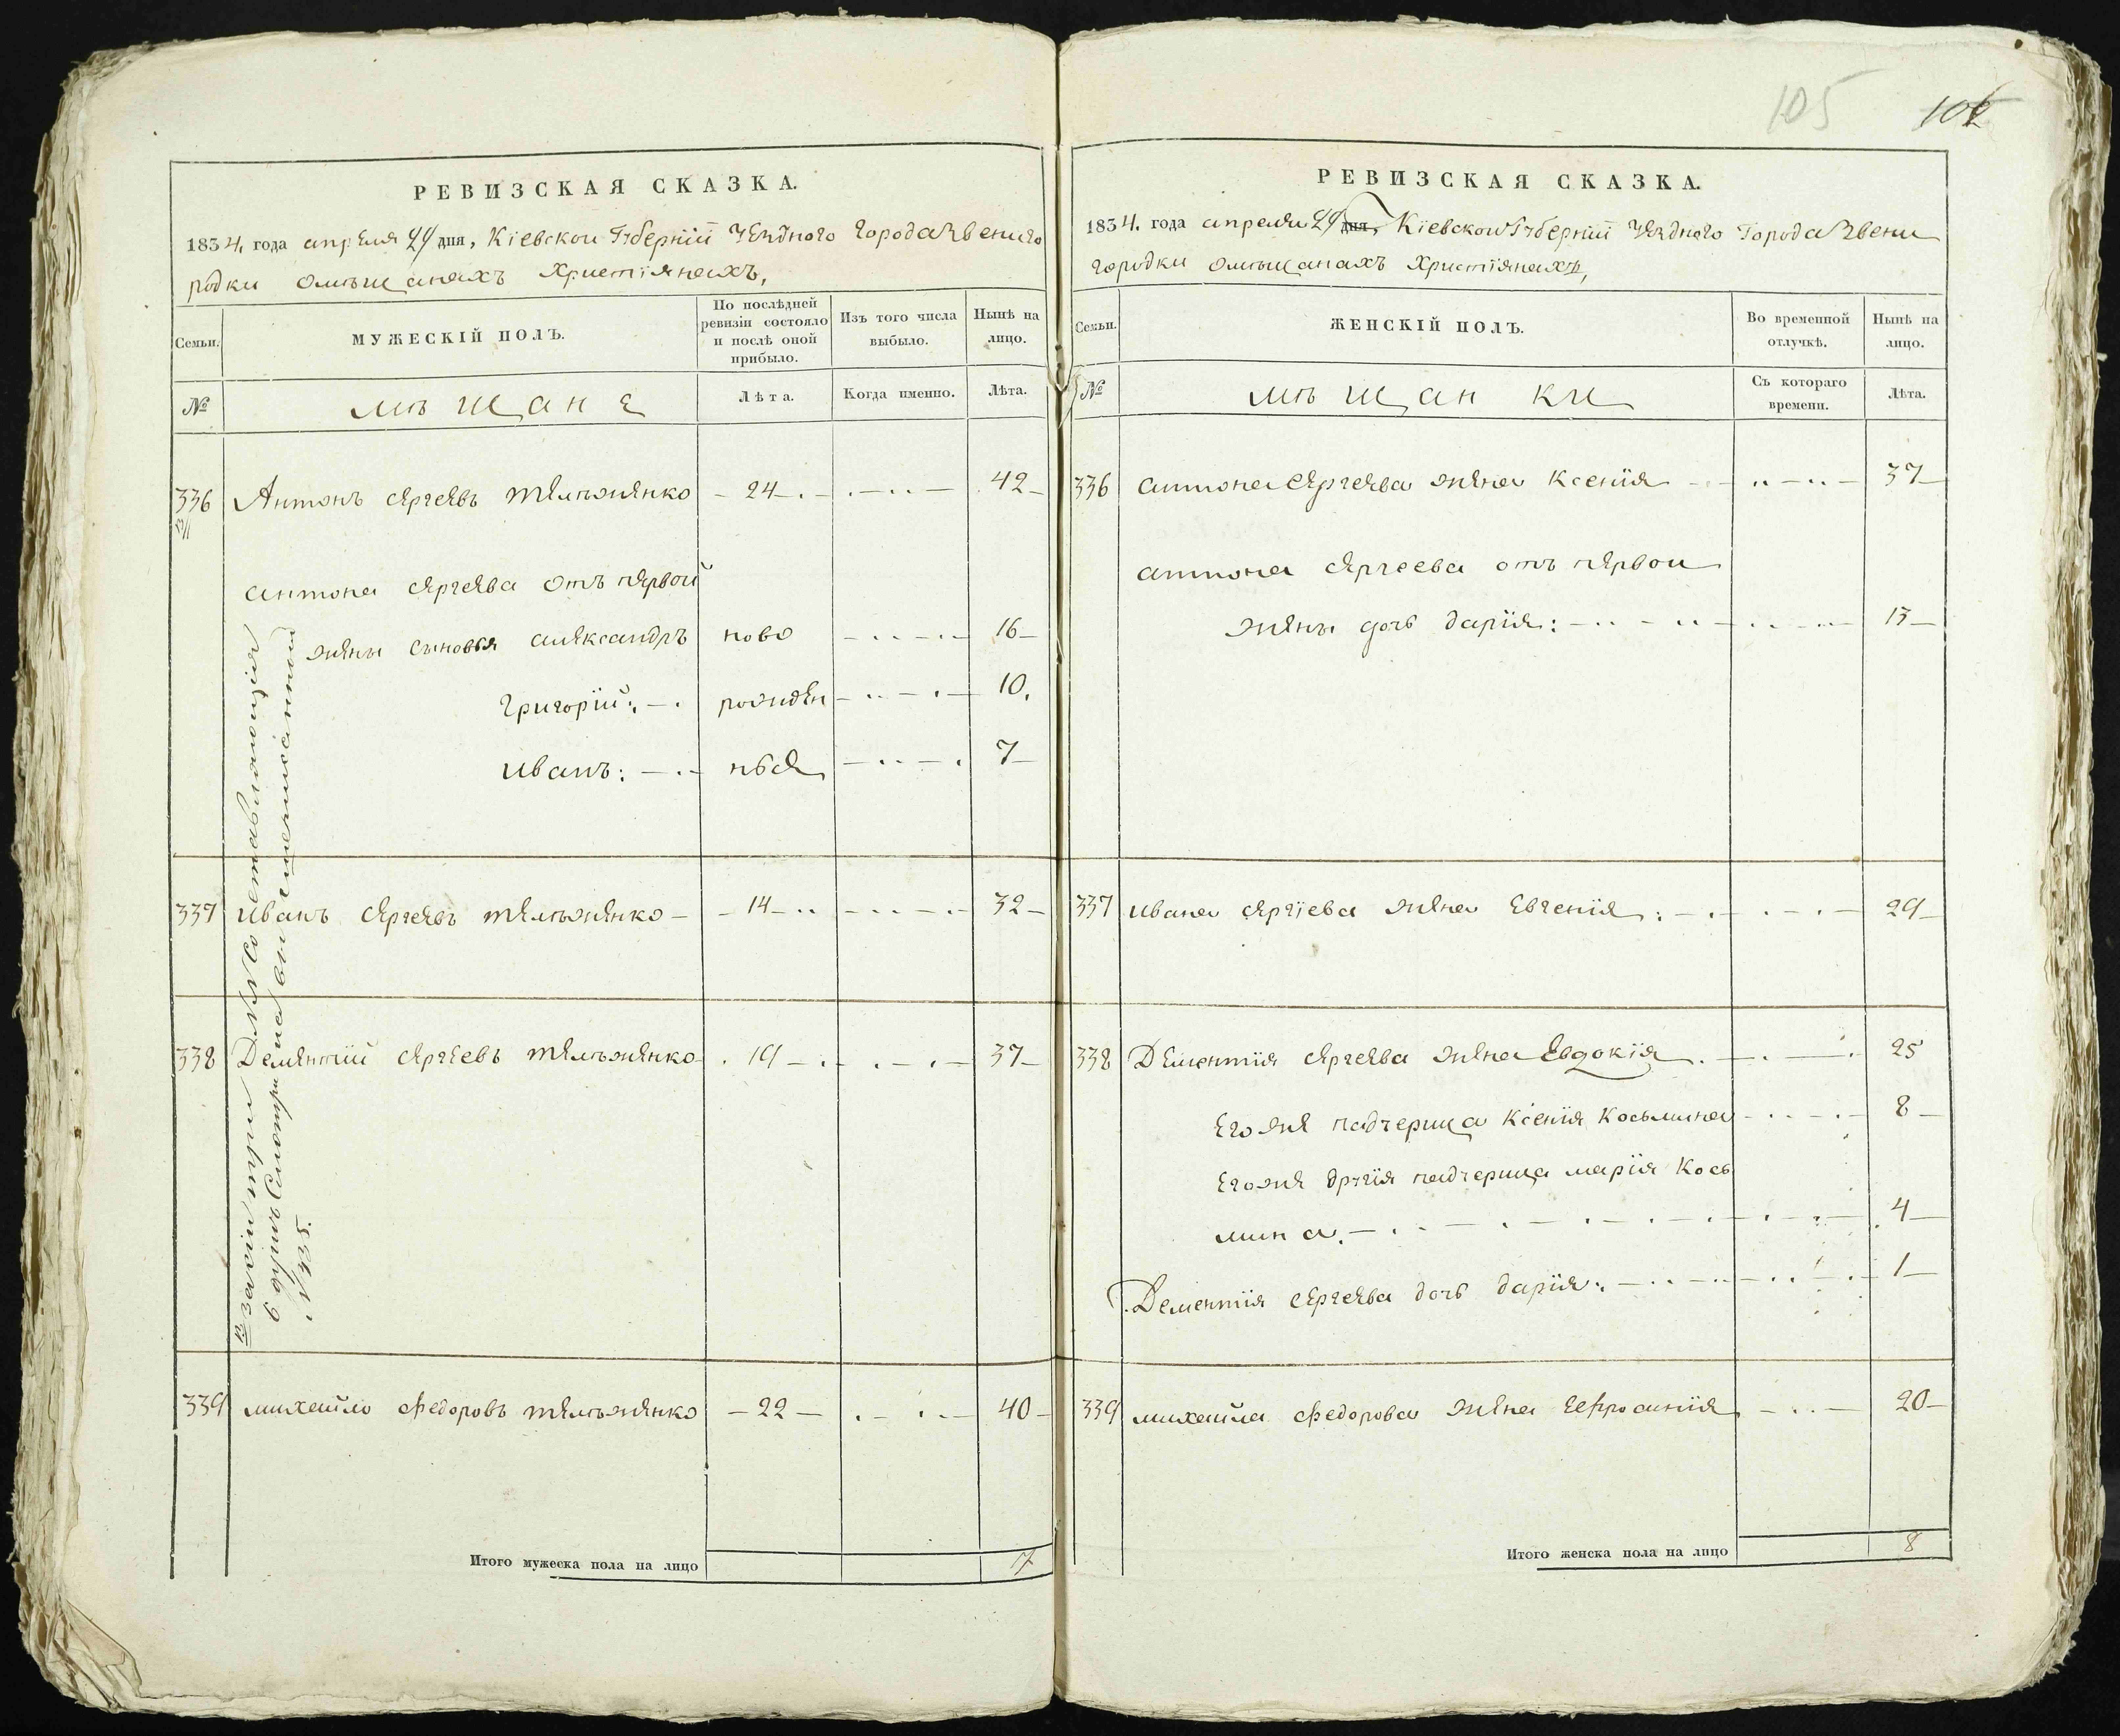 105
102
РЕВИЗСКАЯ СКАЗКА.
1834. года апреля 29 дня, Кіевской Губерніи Уѣзднаго Города Звениго
родки о мѣщанахъ Христіянахъ,
Семьи.
МУЖЕСКІЙ ПОЛЪ.
По послѣдней ревизіи состояло и послѣ оной прибыло.
Изъ того числа выбыло.
Нынѣ на лицо.
№
мѣщане
Лѣта.
Когда именно.
Лѣта.
336 Антонъ Сергеевъ 24 42
антона сергеева отъ первой
жены сыновья александръ ново 16
григорій: рожден 10.
иванъ: ныя 7
337 иванъ сергеевъ 14 32
338 Дементій сергеевъ 19 37
339 михайло федоровъ 22 40
сіи три
в
№ 335.
Итого мужеска пола на лицо 7
РЕВИЗСКАЯ СКАЗКА.
1834. года апреля 29 дня, Кіевской Губерніи Уѣзднаго Города Звени
городки о мѣщанахъ христіянахъ,
Семьи.
ЖЕНСКІЙ ПОЛЪ.
Во временной отлучкѣ.
Нынѣ на лицо.
№
мѣщанки
Съ котораго времени.
Лѣта.
336 антона сергеева жена ксенія 37
антона сергеева отъ первои
жены дочь дарія: 13
337 ивана сергіева жена евгенія: 29
338 Дементія сергеева жена Евдокія 25
его же падчерица ксенія косьмина 8
его же другія падчерица марія кось
мина. 4
Дементія сергеева дочь дарія: 1
339 михайла федорова жена ефросинія 20
Итого женска пола на лицо 8